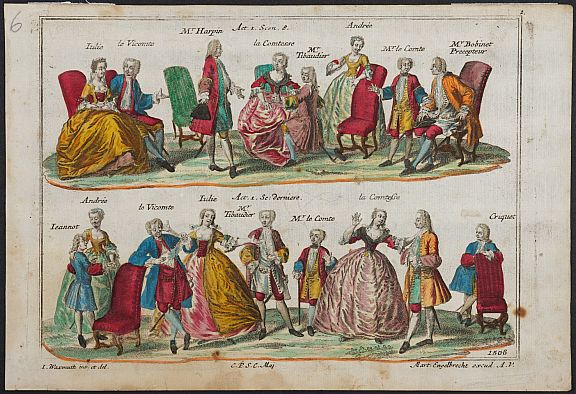 6
1.
Mr. Harpin Act. 1. Scen. 8. Andrée
Iulie le Vicomte la Comtesse Mr. Tibaudier Mr. le Comte Mr. Bobinet Precepteur
Andrée Iulie Act. 1. Sc: derniere. la Comtesse
Ieannot le Vicomte Mr. Tibaudier Mr. le Comte Criquet
1506
I. Wasmutt inv. et del. C. P. S. C. Maj. Mart. Engelbrecht excud. A. V.